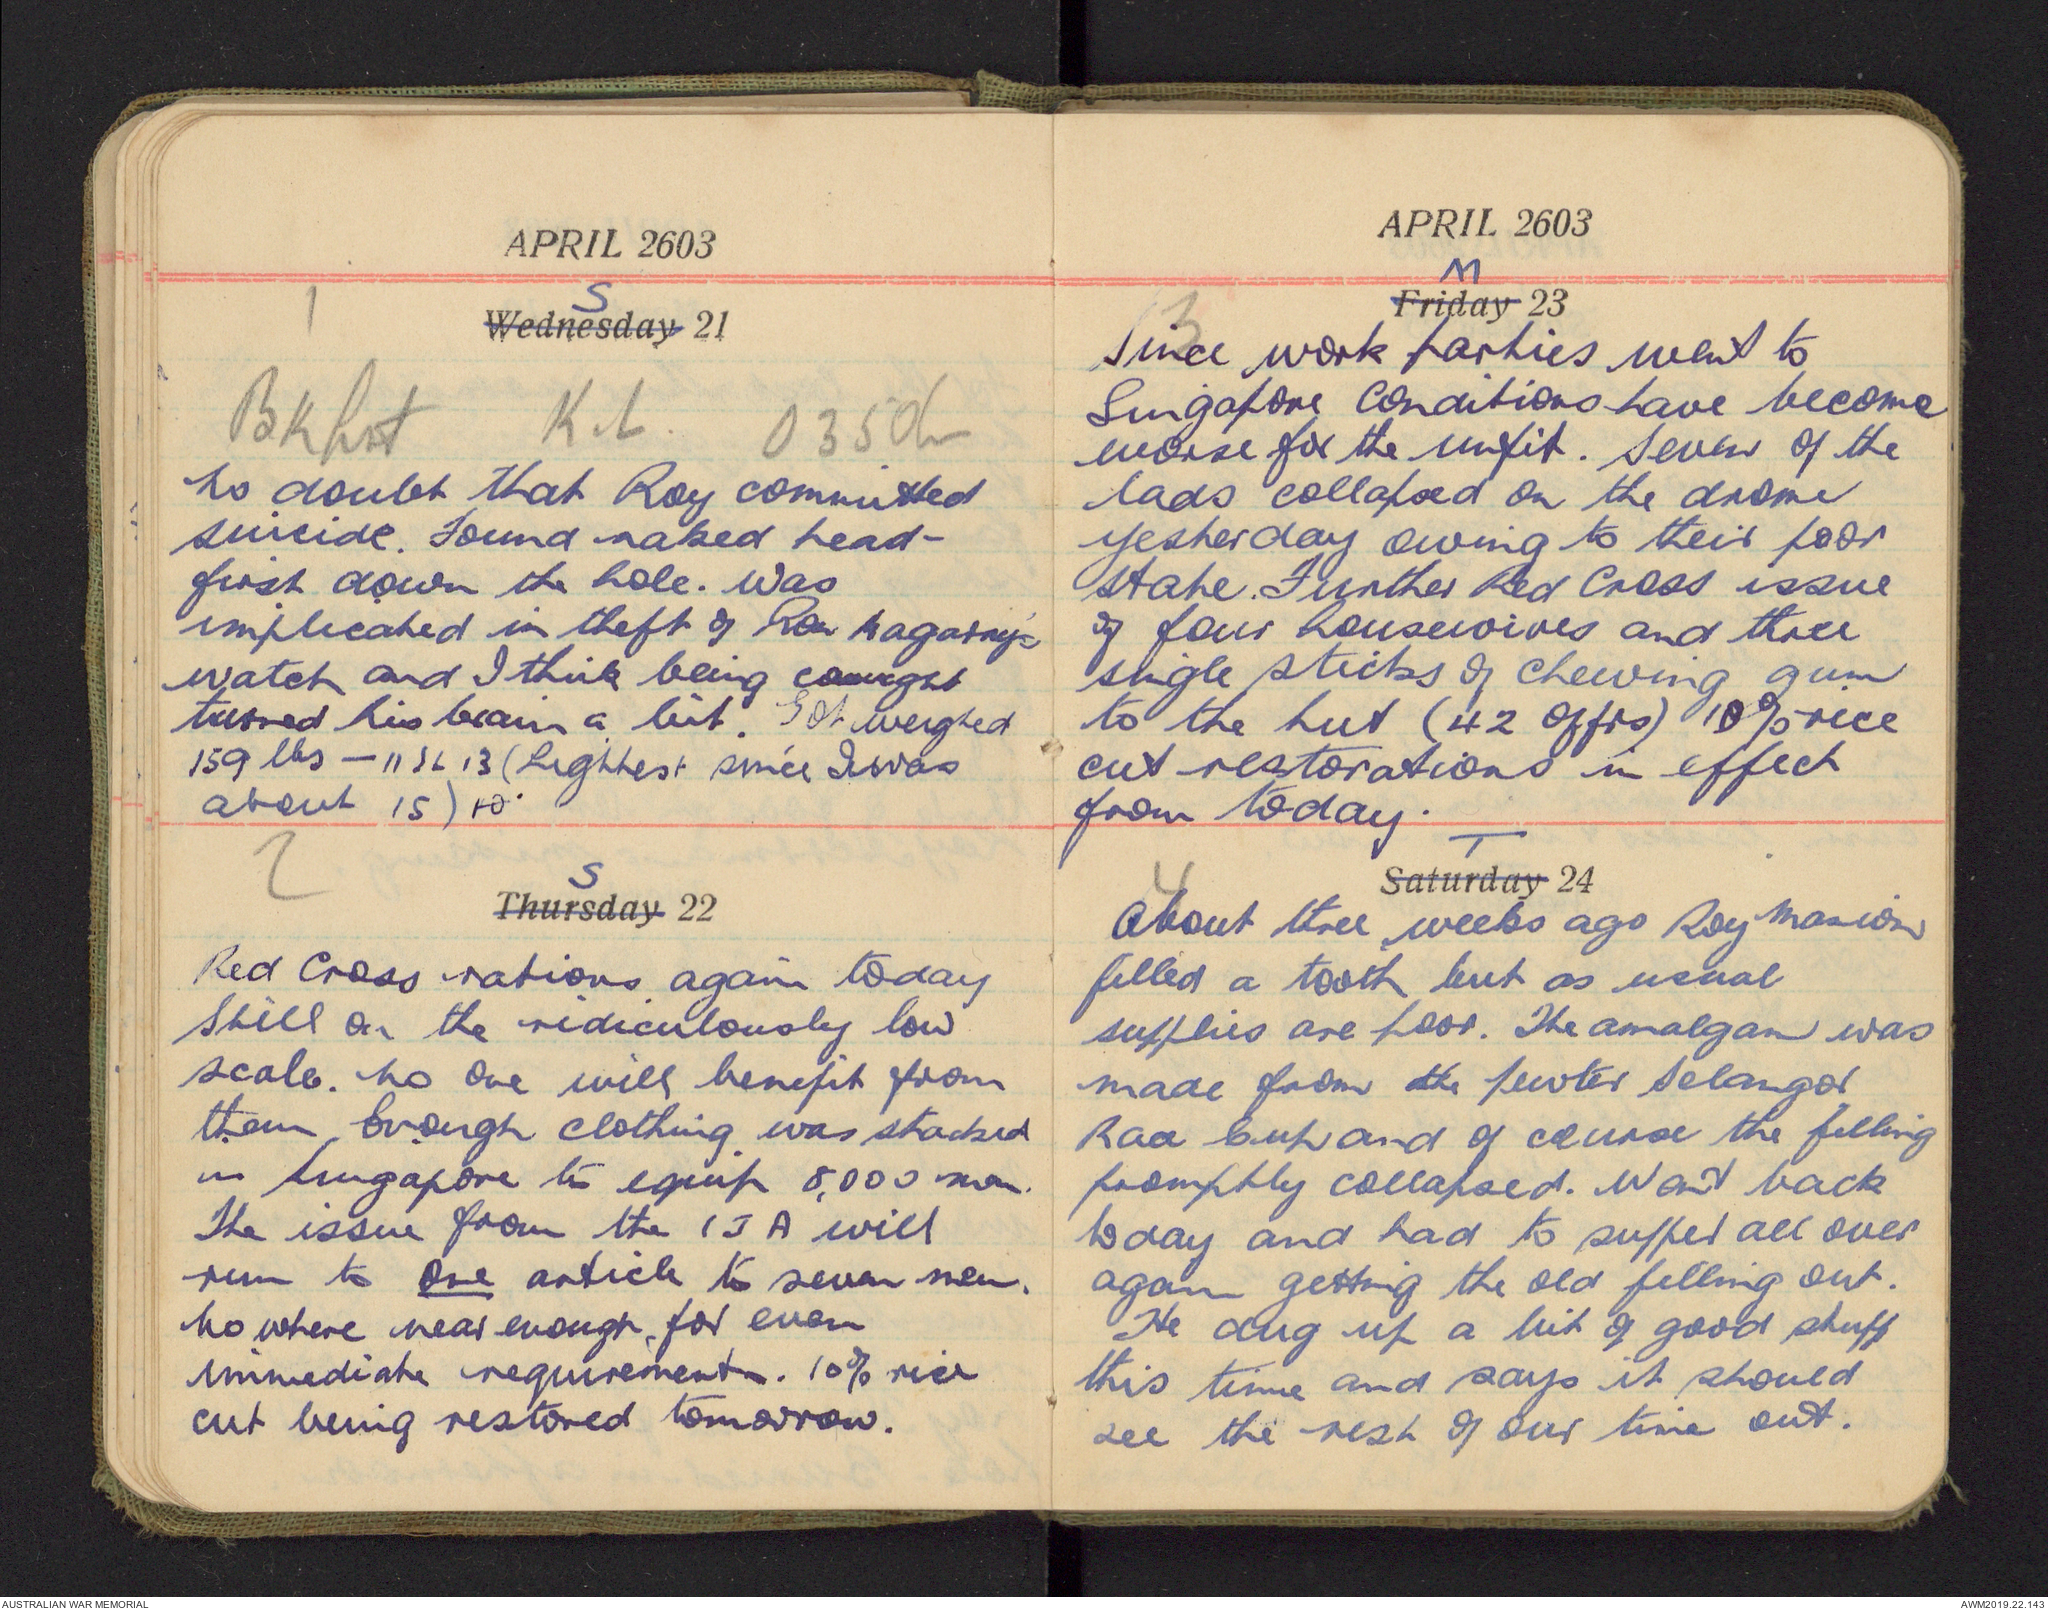 APRIL 2603
1
S
Wednesday 21
Bkfst K.L. 0350h
No doubt that Roy committed
suicide. Found naked head-
first down the hole. Was
implicated in theft of
watch and I think being caught
turned his brain a bit. Got weighed
159 lbs – 11 st 13 (Lightest since I was
about 15)
2
S
Thursday 22
Red Cross rations again today
Still on the ridiculously low
scale. No one will benefit from
them. Enough clothing was stacked
in Singapore to equip 8,000 men.
The issue from the IJA will
run to one article to seven men.
No where near enough for even
immediate requirements. 10% rice
cut being restored tomorrow.
APRIL 2603
M
3
Friday 23
Since work parties went to
Singapore Conditions have become
worse for the unfit. Seven of the
lads collapsed on the drome
yesterday owing to their poor
state. Further Red Cross issue
of four housewives and three
single sticks of chewing gum
to the hut (42 Offrs) 10% rice
cut restorations in effect
from today.
T
4
Saturday 24
About three weeks ago Roy Maxion
filled a tooth but as usual
supplies are poor. The amalgam was
made from the pewter Selangor
Race Cup and of course the filling
promptly collapsed. Went back
today and had to suffer all over
again getting the old filling out.
He dug up a bit of good stuff
this time and says it should
see the rest of our time out.
AUSTRALIAN WAR MEMORIAL
AWM2019.22.143